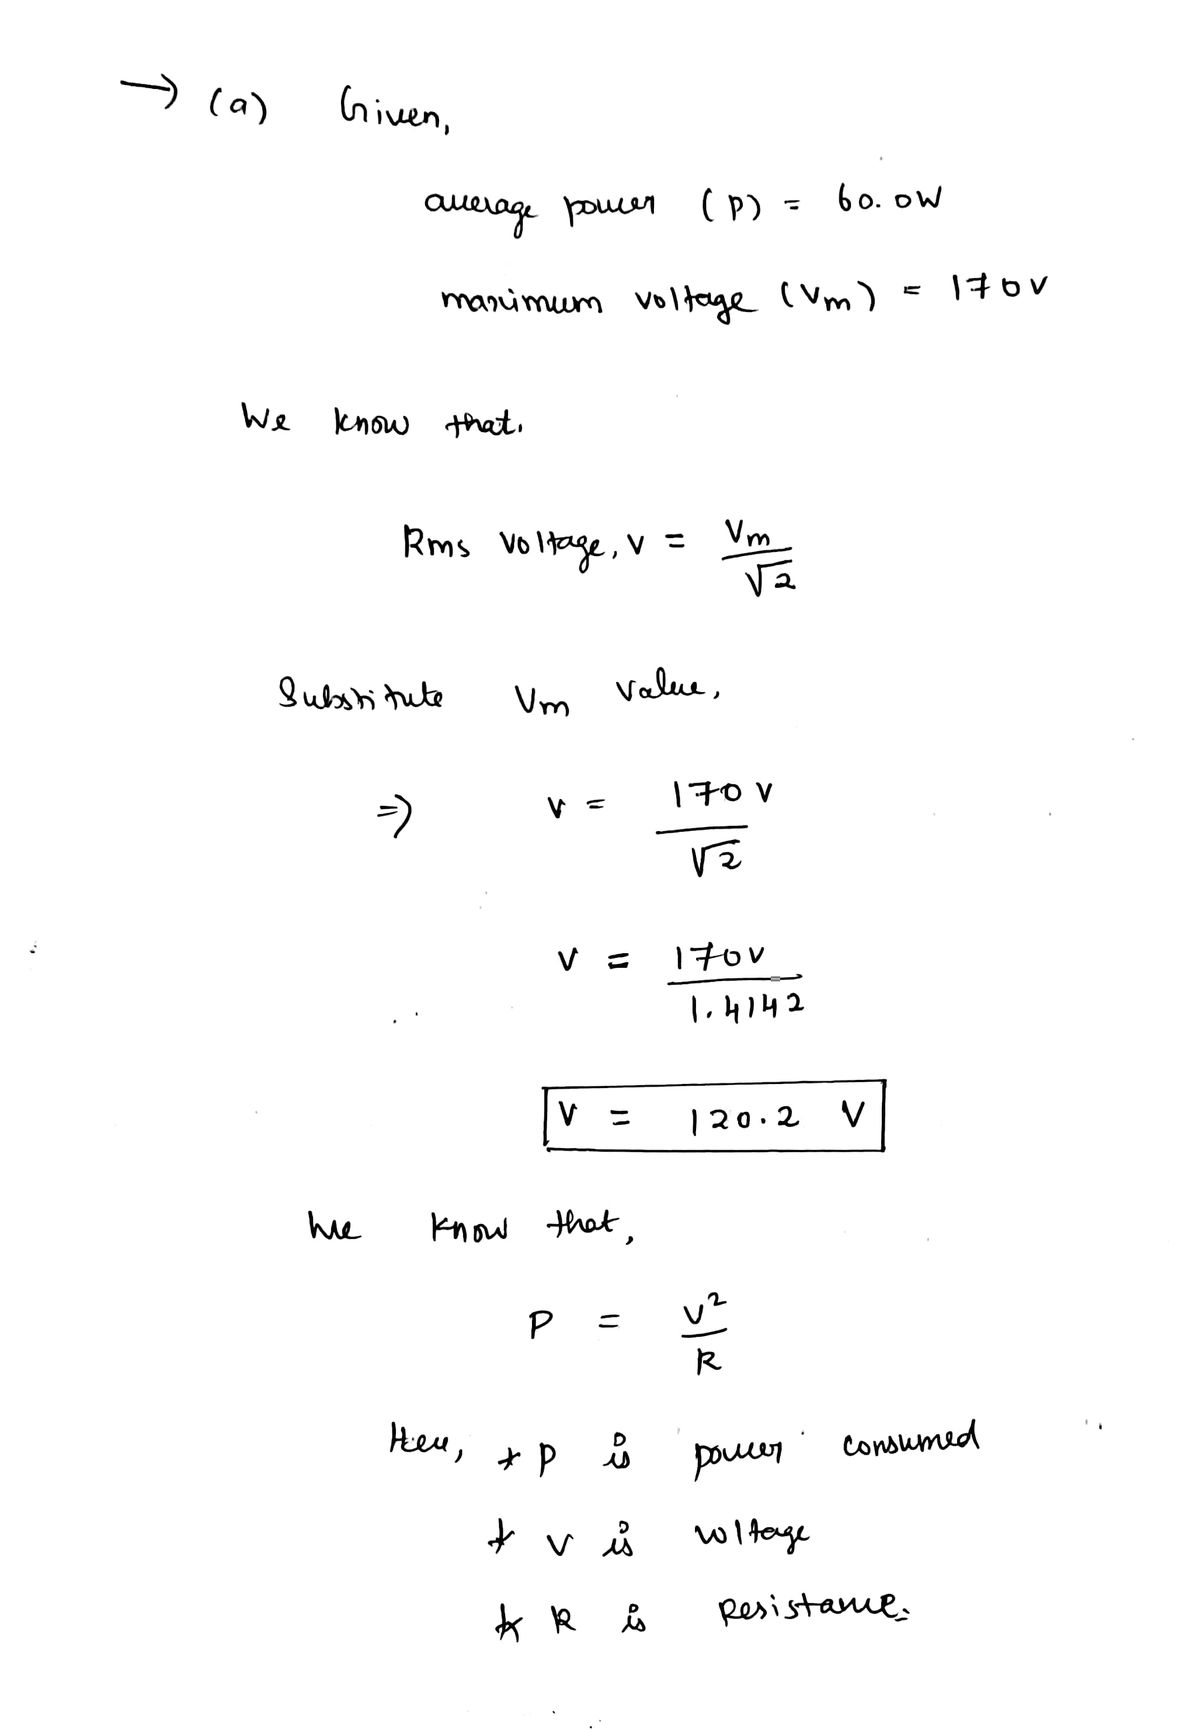 → (a) Given,
average power (P) = 60.0W
maximum voltage (Vm) = 170V
We know that.
Rms Voltage, V = Vm
√2
Substitute Vm value,
⇒ V = 170 V
√2
V = 170V
1.4142
V = 120.2 V
We know that,
P = V²
R
Here, * P is power consumed
* V is voltage
* R is Resistance.